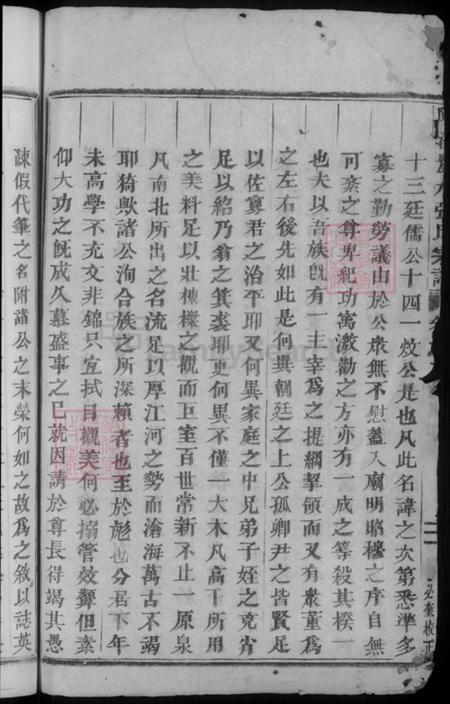 十三廷儒公十四一效公是也凡此名諱之次第悉準多
寡之勤勞議由於公衆無不慰蓋入廟明昭穆之序自無
可紊之尊卑紀功寓激勸之方亦有一成之等殺其揆一
也夫以吾族既有一主宰爲之提綱挈領而又有衆董爲
之左右後先如此是何異朝廷之上公孤卿尹之皆賢足
以佐寡君之治平耶又何異家庭之中兄弟子姪之克肖
足以紹乃翁之箕裘耶更何異不僅一大木凡高干所用
之美料足以壯棟樑之觀而巨室百世常新不止一原泉
凡南北所出之名流足以厚江河之勢而滄海萬古不竭
耶猗歟諸公洵合族之所深賴者也至於彪也分居下年
未高學不充文非錦只宜拭目觀美何必搦管效顰但素
仰大功之旣成久慕盛事之已就因請於尊長得竭其愚
陳假代筆之名附諸公之末榮何如之故爲之敘以誌英